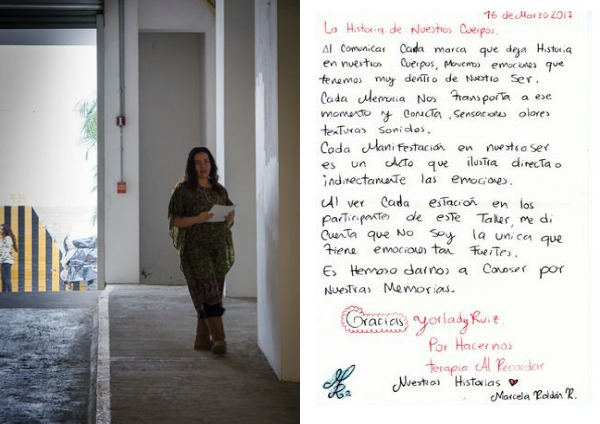 16 de Marzo 2017
La Historia de Nuestros Cuerpos.
Al Comunicar Cada marca que deja Historia
en nuestros Cuerpos, Movemos emociones que
tenemos muy dentro de Nuestro Ser.
Cada Memoria Nos Transporta a ese
momento y Conecta, Sensaciones olores
texturas Sonidos.
Cada Manifestación en nuestro ser
es un Acto que ilustra directa o
indirectamente las emociones.
Al ver Cada estación en los
participantes de este Taller, me di
Cuenta que No Soy la unica que
Tiene emociones tan Fuertes.
Es Hermoso darnos a Conoser por
Nuestras Memorias.
Gracias yorlady Ruiz.
Por Hacernos
terapia Al Recordar
Nuestras Historias
Marcela Roldán R.